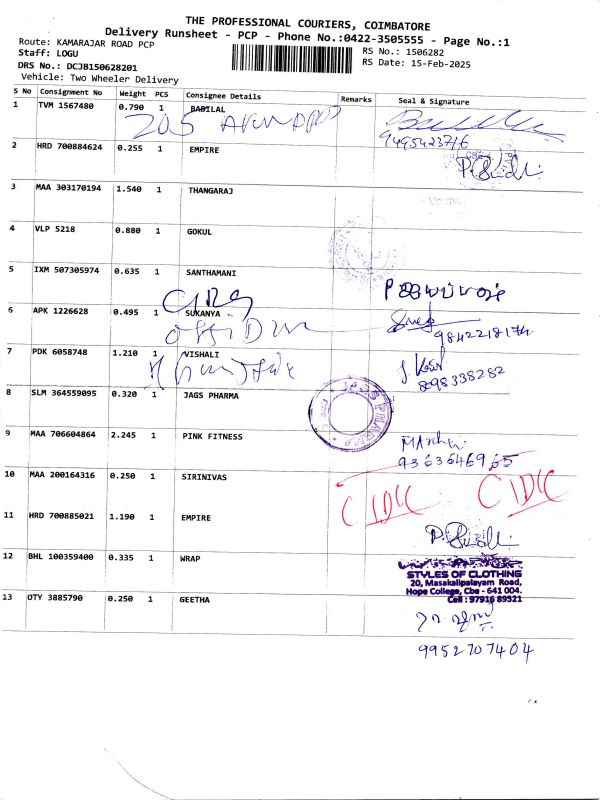 THE PROFESSIONAL COURIERS, COIMBATORE
Delivery Runsheet - PCP - Phone No.:0422-3505555 - Page No.:1
Route: KAMARAJAR ROAD PCP
Staff: LOGU
RS No.: 1506282
DRS No.: DCJB150628201
RS Date: 15-Feb-2025
Vehicle: Two Wheeler Delivery
S No Consignment No Weight PCS Consignee Details Remarks Seal & Signature
1 TVM 1567480 0.790 1 BABILAL
205
9495423716
2 HRD 700884624 0.255 1 EMPIRE
3 MAA 303170194 1.540 1 THANGARAJ
4 VLP 5218 0.880 1 GOKUL
5 IXM 507305974 0.635 1 SANTHAMANI
6 APK 1226628 0.495 1 SUKANYA
7 PDK 6058748 1.210 1 VISHALI
8098338282
8 SLM 364559095 0.320 1 JAGS PHARMA
9 MAA 706604864 2.245 1 PINK FITNESS
9363646965
10 MAA 200164316 0.250 1 SIRINIVAS
11 HRD 700885021 1.190 1 EMPIRE
12 BHL 100359400 0.335 1 WRAP
STYLES OF CLOTHING
20, Masakalipalayam Road,
Hope College, Cbe - 641 004.
Cell : 97916 89521
13 OTY 3885790 0.250 1 GEETHA
9952707404